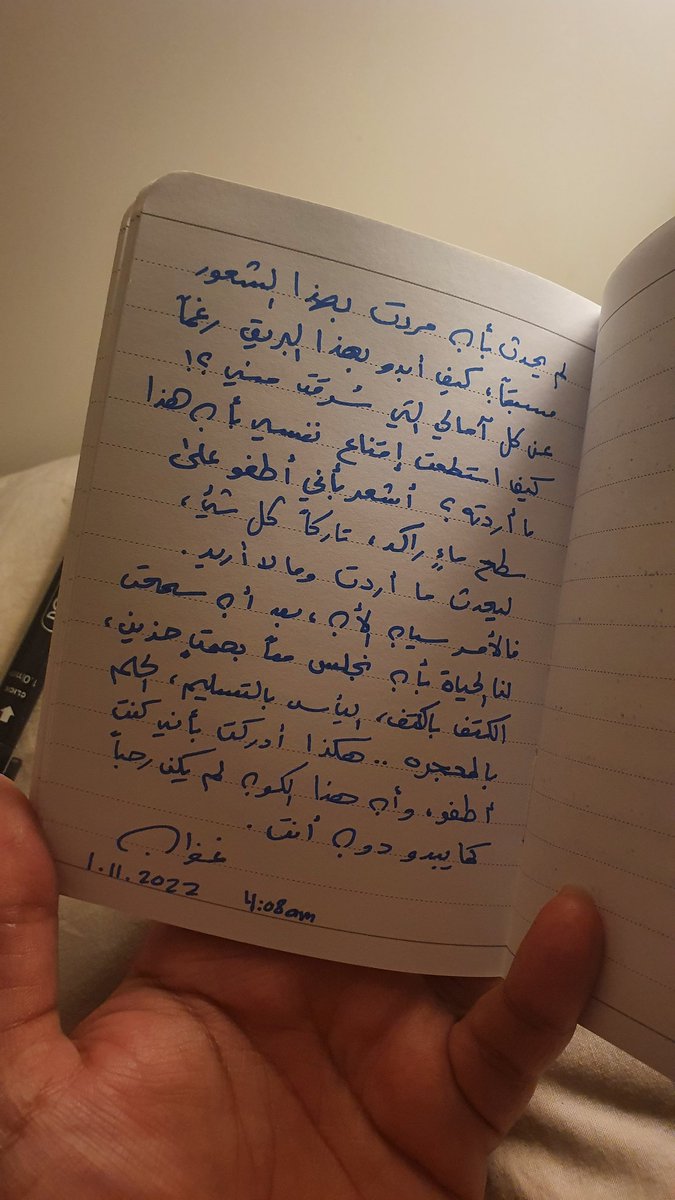 لم يحدث بأن مررت بهذا الشعور
مسبقاً؛ كيف أبدو بهذا البريق رغماً
عن كل آمالي التي سُرقت مني؟!
كيف استطعت إقناع نفسي بأن هذا
ما أردته؟ أشعر بأني أطفو على
سطح ماءٍ راكد، تاركاً كل شيء،
ليحدث ما أردت وما لا أريد.
فالأمر سيان الأن، بعد أن سمحت
لنا الحياة بأن نجلس معاً بصمتٍ حزين،
الكتف بالكتف، اليأس بالتسليم، الحلم
بالمعجزه.. هكذا أدركت بأني كنت
أطفو، وأن هذا الكون لم يكن رحباً
كما يبدو دون أنت.
1.11.2022 4:08am
CLICK